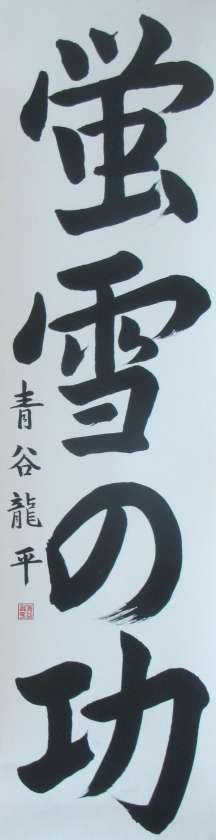 蛍雪の功
青谷龍平